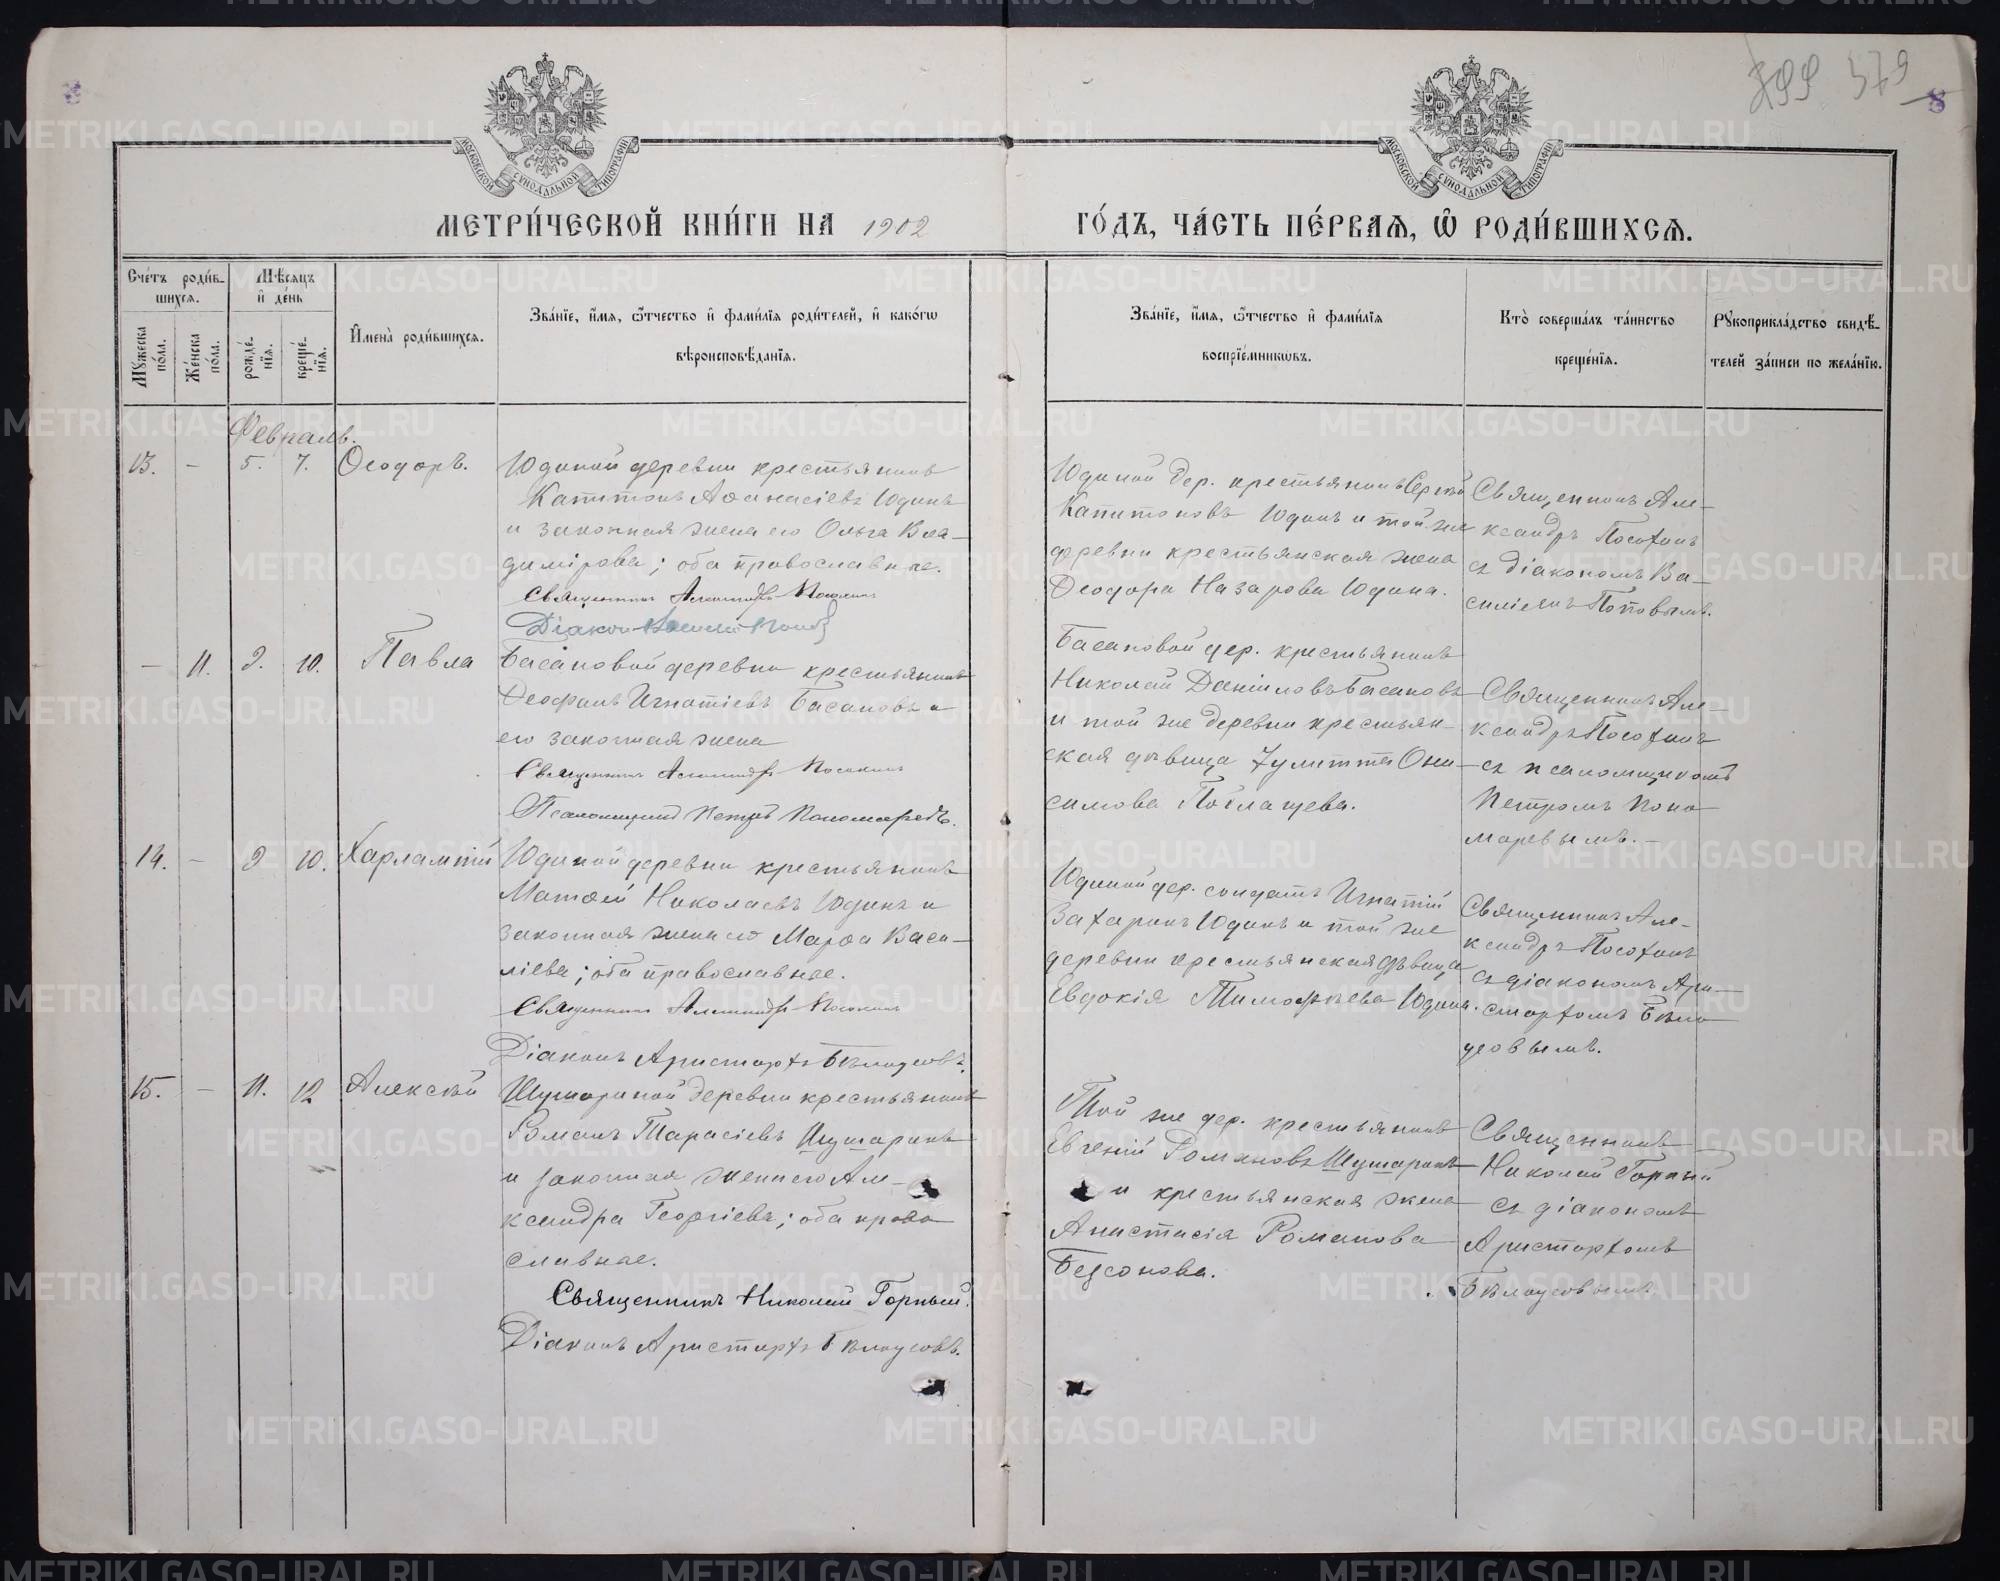 МЕТРИ́ЧЕСКОЙ КНИ́ГИ НА 1902 ГО́ДЪ, ЧА́СТЬ ПЕ́РВАЯ, Ѽ РОДИ́ВШИХСЯ.
МОСКОВСКОЙ СѴНОДАЛЬНОЙ ТИПОГРАФІИ
МОСКОВСКОЙ СѴНОДАЛЬНОЙ ТИПОГРАФІИ
379
8
Сче́тъ роди́в-
шихся.
Мѣ́сяцъ
и҆ де́нь
Мꙋ́жеска
по́ла.
Же́нска
по́ла.
рожде́-
нїя.
креще́-
нїя.
И҆мена̀ роди́вшихся.
Зва́нїе, и҆́мя, ѻ҆́тчество и҆ фами́лїя роди́телей, и҆ како́гѡ
вѣроисповѣ́данїя.
Зва́нїе, и҆́мя, ѻ҆́тчество и҆ фами́лїя
воспрїе́мникѡвъ.
Кто̀ соверша́лъ та́инство
креще́нїя.
Рꙋкоприкла́дство свидѣ́-
телей за́писи по жела́нїю.
Февраль.
13. - 5. 7. Ѳеодоръ.
Юдиной деревни крестьянинъ
Капитонъ Аѳанасіевъ Юдинъ
и законная жена его Ольга Вла-
димірова; оба православные.
Священникъ Александръ Посохинъ
Діаконъ Василій Поповъ
Юдиной дер. крестьянинъ Сергѣй
Капитоновъ Юдинъ и той же
деревни крестьянская жена
Ѳеодора Назарова Юдина.
Священникъ Але-
ксандръ Посохинъ
съ діакономъ Ва-
силіемъ Поповымъ.
- 11. 9. 10. Павла
Басановой деревни крестьянинъ
Ѳеофанъ Игнатіевъ Басановъ и
его законная жена
Священникъ Александръ Посохинъ
Псаломщикъ Петръ Пономаревъ.
Басановой дер. крестьянинъ
Николай Даніиловъ Басановъ
и той же деревни крестьян-
ская дѣвица Іулитта Они-
симова Поглазцева.
Священникъ Але-
ксандръ Посохинъ
съ псаломщикомъ
Петромъ Поно
маревымъ. -
14. - 9 10. Харлампій
Юдиной деревни крестьянинъ
Матѳей Николаевъ Юдинъ и
законная жена его Марѳа Васи-
ліева; оба православные.
Священникъ Александръ Посохинъ
Діаконъ Аристархъ Бѣлоусовъ.
Юдиной дер. солдатъ Игнатій
Захаринъ Юдинъ и той же
деревни крестьянская дѣвица
Евдокія Тимоѳеева Юдина.
Священникъ Але-
ксандръ Посохинъ
съ діакономъ Ари-
стархомъ Бѣло
усовымъ.
15. - 11. 12 Алексѣй
Шушариной деревни крестьянинъ
Романъ Тарасіевъ Шушаринъ
и законная жена его Але-
ксандра Георгіева; оба право
славные.
Священникъ Николай Горный.
Діаконъ Аристархъ Бѣлоусовъ.
Той же дер. крестьянинъ
Евгеній Романовъ Шушаринъ
и крестьянская жена
Анастасія Романова
Безсонова.
Священникъ
Николай Горный
съ діакономъ
Аристархомъ
Бѣлоусовымъ
METRIKI.GASO-URAL.RU